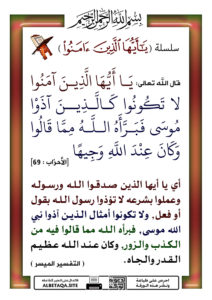 بسم الله الرحمن الرحيم
سلسلة ﴿ يَـٰٓأَيُّهَا ٱلَّذِينَ ءَامَنُوا۟ ﴾
قال الله تعالى: يَا أَيُّهَا الَّذِينَ آمَنُوا
لَا تَكُونُوا كَالَّذِينَ آذَوْا
مُوسَى فَبَرَّأَهُ اللَّهُ مِمَّا قَالُوا
وَكَانَ عِنْدَ اللَّهِ وَجِيهًا
[الأحزاب : 69]
أي يا أيها الذين صدقوا الله ورسوله
وعملوا بشرعه لا تؤذوا رسول الله بقول
أو فعل, ولا تكونوا أمثال الذين آذوا نبي
الله موسى, فبرأه الله مما قالوا فيه من
الكذب والزور, وكان عند الله عظيم
القدر والجاه.
( التفسير الميسر )
ALBETAQA.SITE